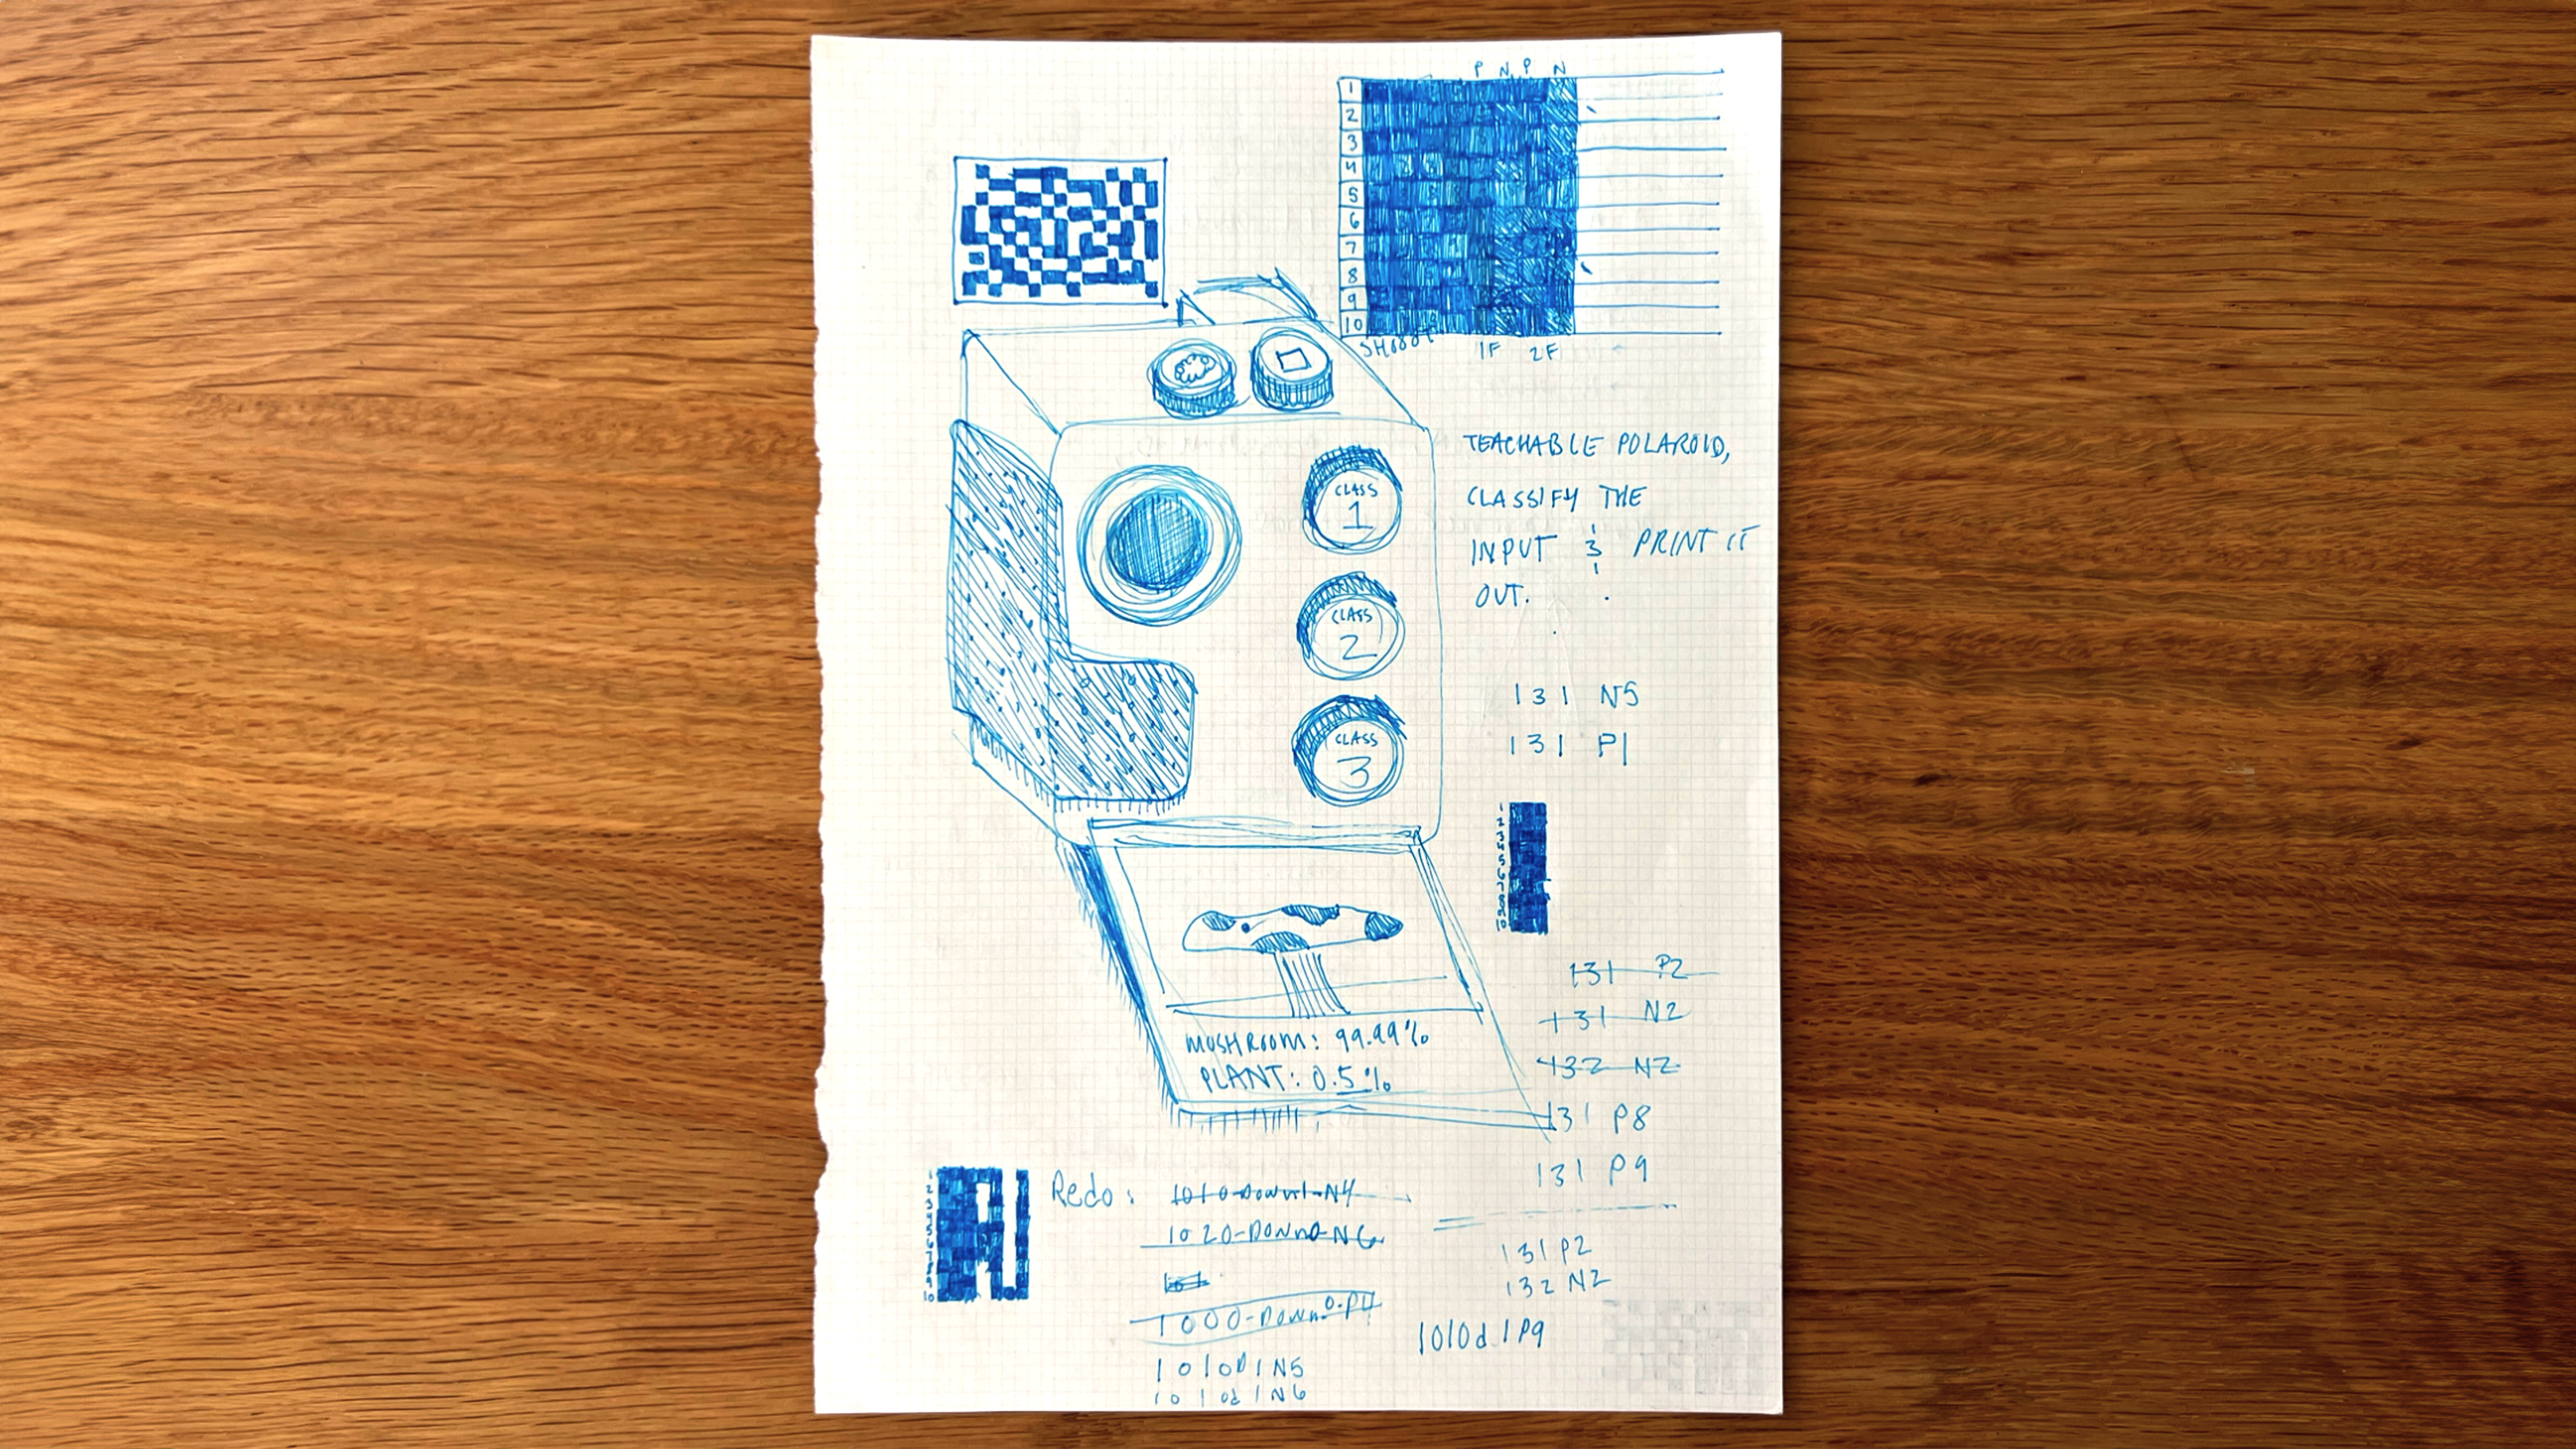 P N P N
1
2
3
4
5
6
7
8
9
10
SHOOOT
1F 2F
TEACHABLE POLAROID,
CLASSIFY THE
INPUT & PRINT IT
OUT.
CLASS
1
CLASS
2
CLASS
3
131 N5
131 P1
MUSHROOM: 99.99%
PLANT: 0.5%
131 P2
131 N2
132 N2
131 P8
131 P9
131 P2
132 N2
1010d1P9
Redo: 1010-Down1-N4
1020-Down0-N6
1000-Down0-P
1010D1N5
1010d1N6